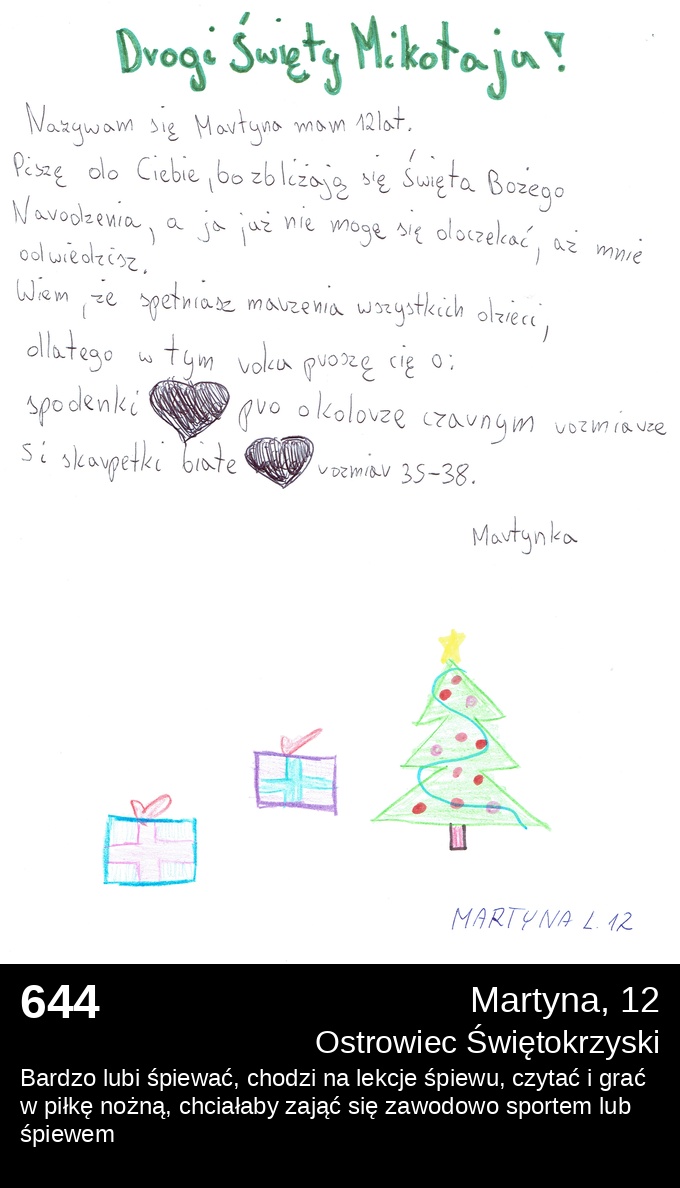 Drogi Święty Mikołaju!
Nazywam się Martyna mam 12lat.
Piszę do Ciebie, bo zbliżają się Święta Bożego
Narodzenia, a ja już nie mogę się doczekać, aż mnie
odwiedzisz.
Wiem, że spełniasz marzenia wszystkich dzieci,
dlatego w tym roku proszę cię o:
spodenki pro o kolorze czarnym rozmiarze
S i skarpetki białe rozmiar 35-38.
Martynka
MARTYNA L. 12
644
Martyna, 12
Ostrowiec Świętokrzyski
Bardzo lubi śpiewać, chodzi na lekcje śpiewu, czytać i grać
w piłkę nożną, chciałaby zająć się zawodowo sportem lub
śpiewem